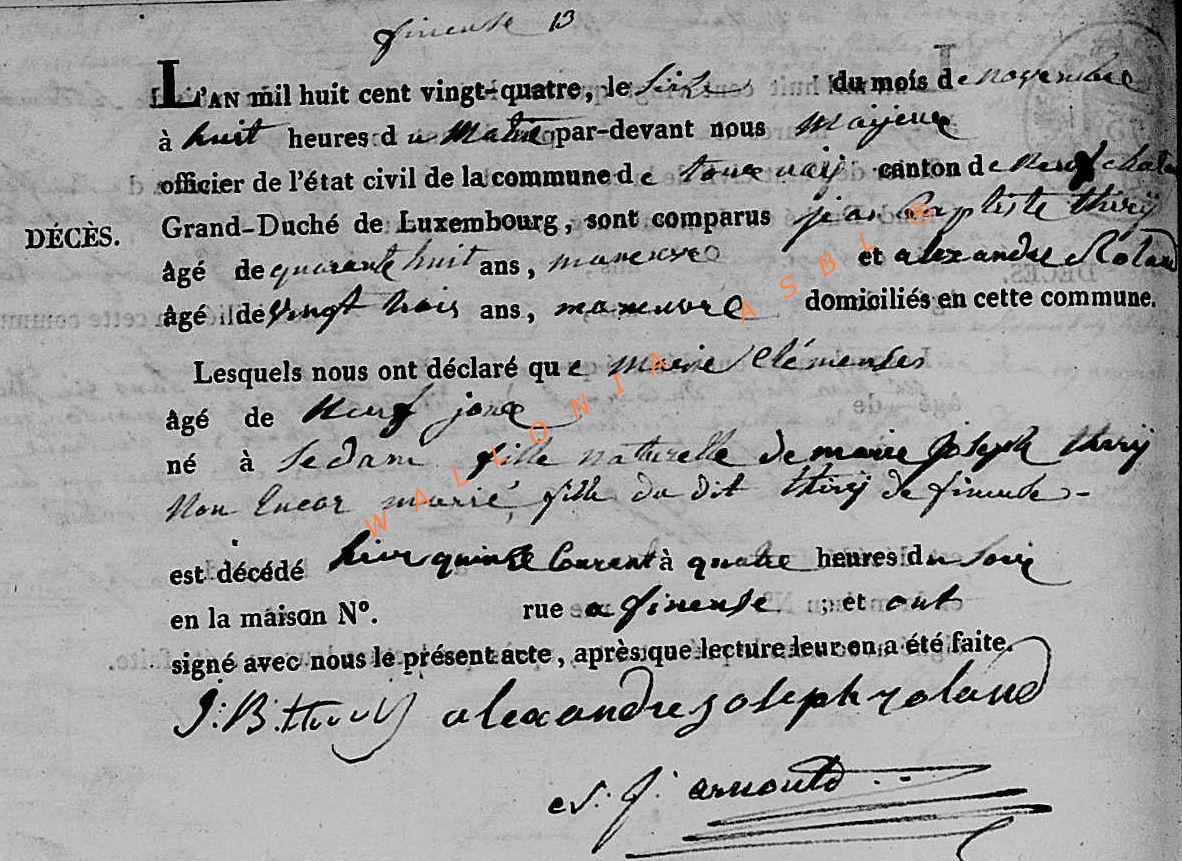 fineuse 13
L'AN mil huit cent vingt-quatre, le seize du mois de novembre
à huit heures du Matin par-devant nous Mayeur
officier de l'état civil de la commune de tournaij canton de Neufchateau
DÉCÈS. Grand-Duché de Luxembourg, sont comparus jean baptiste thirÿ
âgé de quarante huit ans, maneuvre et alexandre Roland
âgé de vingt trois ans, maneuvre domiciliés en cette commune.
Lesquels nous ont déclaré que marie Clémense
âgé de Neuf jour
né à Sedam fille naturelle de marie joseph thirÿ
Non Encor marié, fille du dit thirÿ de fineuse -
est décédé hier quinze Courant à quatre heures du soir
en la maison N°. rue a fineuse ; et ont
signé avec nous le présent acte, après que lecture leur en a été faite.
J: B: thiry alexandre joseph roland
arnould
WALLONIA ASBL ®